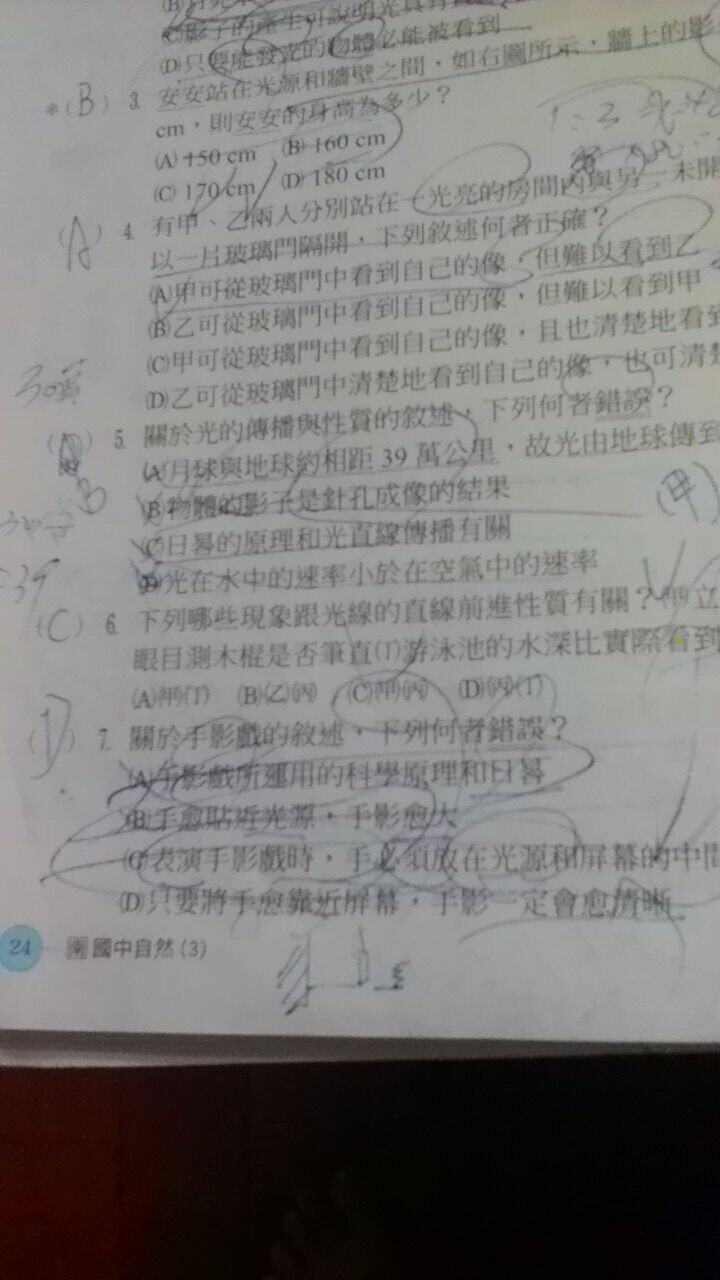 (C)影子的產生可說明光具有
(D)只要能發光的物體必能被看到
*(B) 3. 安安站在光源和牆壁之間，如右圖所示，牆上的影
cm，則安安的身高為多少？
1:2
(A) 150 cm (B) 160 cm
(C) 170 cm (D) 180 cm
(A) 4. 有甲、乙兩人分別站在一光亮的房間內與另一未開
以一片玻璃門隔開，下列敘述何者正確？
(A)甲可從玻璃門中看到自己的像，但難以看到乙
(B)乙可從玻璃門中看到自己的像，但難以看到甲
(C)甲可從玻璃門中看到自己的像，且也清楚地看到
(D)乙可從玻璃門中清楚地看到自己的像，也可清楚
30萬
( ) 5. 關於光的傳播與性質的敘述，下列何者錯誤？
(A)月球與地球約相距 39 萬公里，故光由地球傳到
B (B)物體的影子是針孔成像的結果
(甲)
(C)日晷的原理和光直線傳播有關
39
(D)光在水中的速率小於在空氣中的速率
(C) 6. 下列哪些現象跟光線的直線前進性質有關？(甲)立
眼目測木棍是否筆直(丁)游泳池的水深比實際看到
(A)(甲)(丁) (B)(乙)(丙) (C)(甲)(丙) (D)(丙)(丁)
(D) 7. 關於手影戲的敘述，下列何者錯誤？
(A)手影戲所運用的科學原理和日晷
(B)手愈貼近光源，手影愈大
(C)表演手影戲時，手必須放在光源和屏幕的中間
(D)只要將手愈靠近屏幕，手影一定會愈清晰
24 國中自然(3)